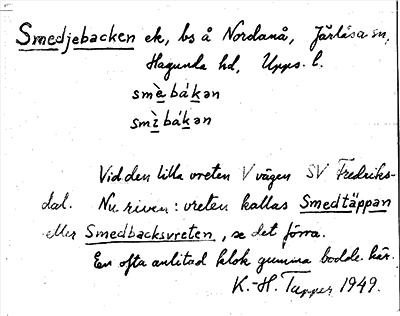 Smedjebacken ek, bs å Nordanå, Järlåsa sn,
Hagunda hd, Upps. l.
smè̱ bák̠ən
smì̱ bák̠ən
Vid den lilla vreten V vägen SV Fredriks-
dal. Nu riven: vreten kallas Smedtäppan
eller Smedbacksvreten, se det förra.
En ofta anlitad klok gumma bodde här.
K.-H. Tapper 1949.